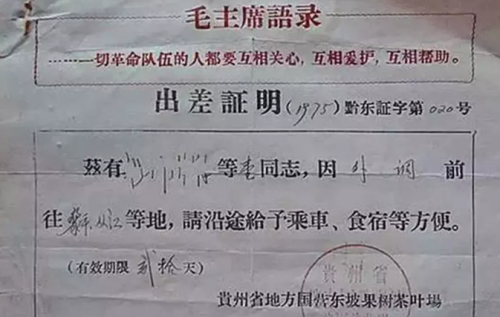 毛主席語录
……一切革命队伍的人都要互相关心,互相爱护,互相帮助。
出差証明(1975)黔东証字第020号
茲有 等 同志,因外调前
往 从江等地,請沿途給予乘車、食宿等方便。
(有效期限 贰拾 天)
貴州省
貴州省地方国营东坡果树茶叶場